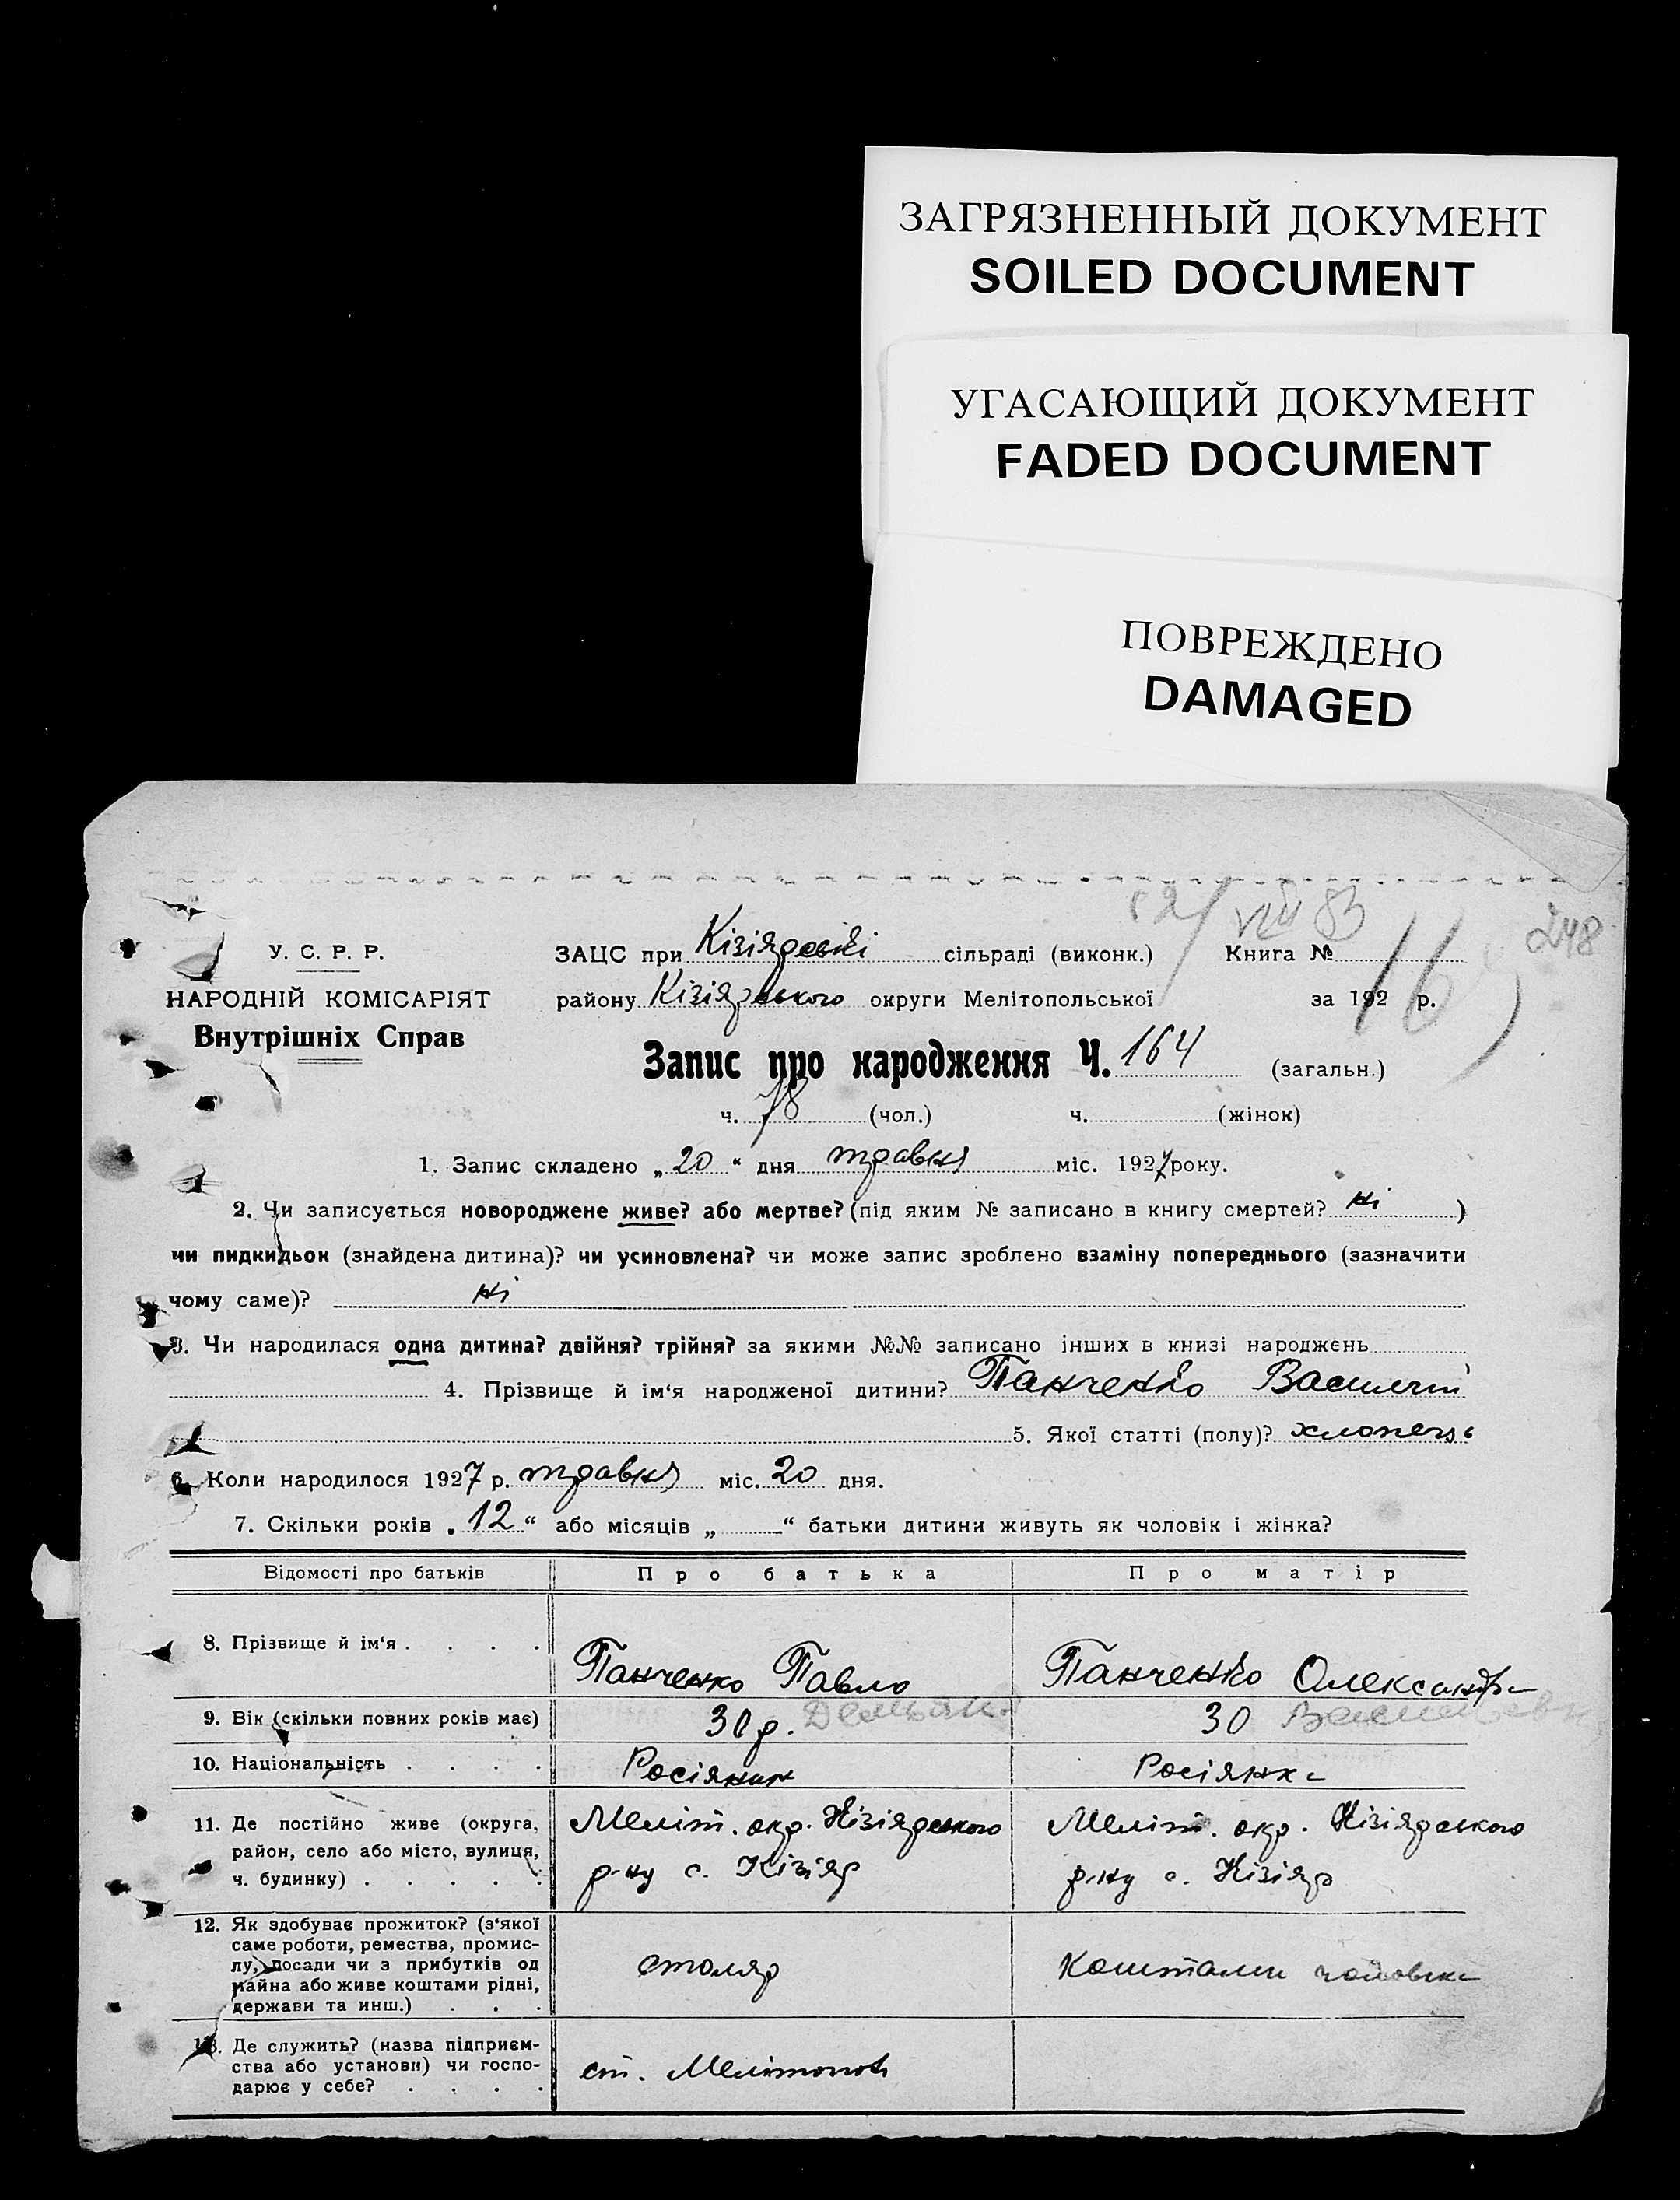 ЗАГРЯЗНЕННЫЙ ДОКУМЕНТ
SOILED DOCUMENT
УГАСАЮЩИЙ ДОКУМЕНТ
FADED DOCUMENT
ПОВРЕЖДЕНО
DAMAGED
248
16
У. С. Р. Р.
НАРОДНІЙ КОМІСАРІЯТ
Внутрішніх Справ
ЗАЦС при Кізіярській сільраді (виконк.) Книга №
району Кізіярського округи Мелітопольської за 192 р.
Запис про народження Ч. 164 (загальн.)
ч. 78 (чол.) ч. (жінок)
1. Запис складено „20“ дня травня міс. 1927 року.
2. Чи записується новороджене живе? або мертве? (під яким № записано в книгу смертей? ні )
чи пидкидьок (знайдена дитина)? чи усиновлена? чи може запис зроблено взаміну попереднього (зазначити
чому саме)? ні
3. Чи народилася одна дитина? двійня? трійня? за якими №№ записано інших в книзі народжень
4. Прізвище й ім'я народженої дитини? Панченко Василий
5. Якої статті (полу)? хлопець
6. Коли народилося 1927 р. травня міс. 20 дня.
7. Скільки років „12“ або місяців „ “ батьки дитини живуть як чоловік і жінка?
Відомості про батьків Про батька Про матір
8. Прізвище й ім'я . . . . Панченко Павло Панченко Олександра
9. Вік (скільки повних років має) 30 р. 30
10. Національність . . . . Росіянин Росіянка
11. Де постійно живе (округа, Меліт. окр. Кізіярського Меліт. окр. Кізіярського
район, село або місто, вулиця, р-ну с. Кізіяр р-ну с. Кізіяр
ч. будинку) . . . . .
12. Як здобуває прожиток? (з'якої
саме роботи, ремества, промис-
лу, посади чи з прибутків од столяр Коштами чоловіка
майна або живе коштами рідні,
держави та инш.) . . .
13. Де служить? (назва підприєм-
ства або установи) чи госпо- ст. Мелітополь
дарює у себе? . . . .